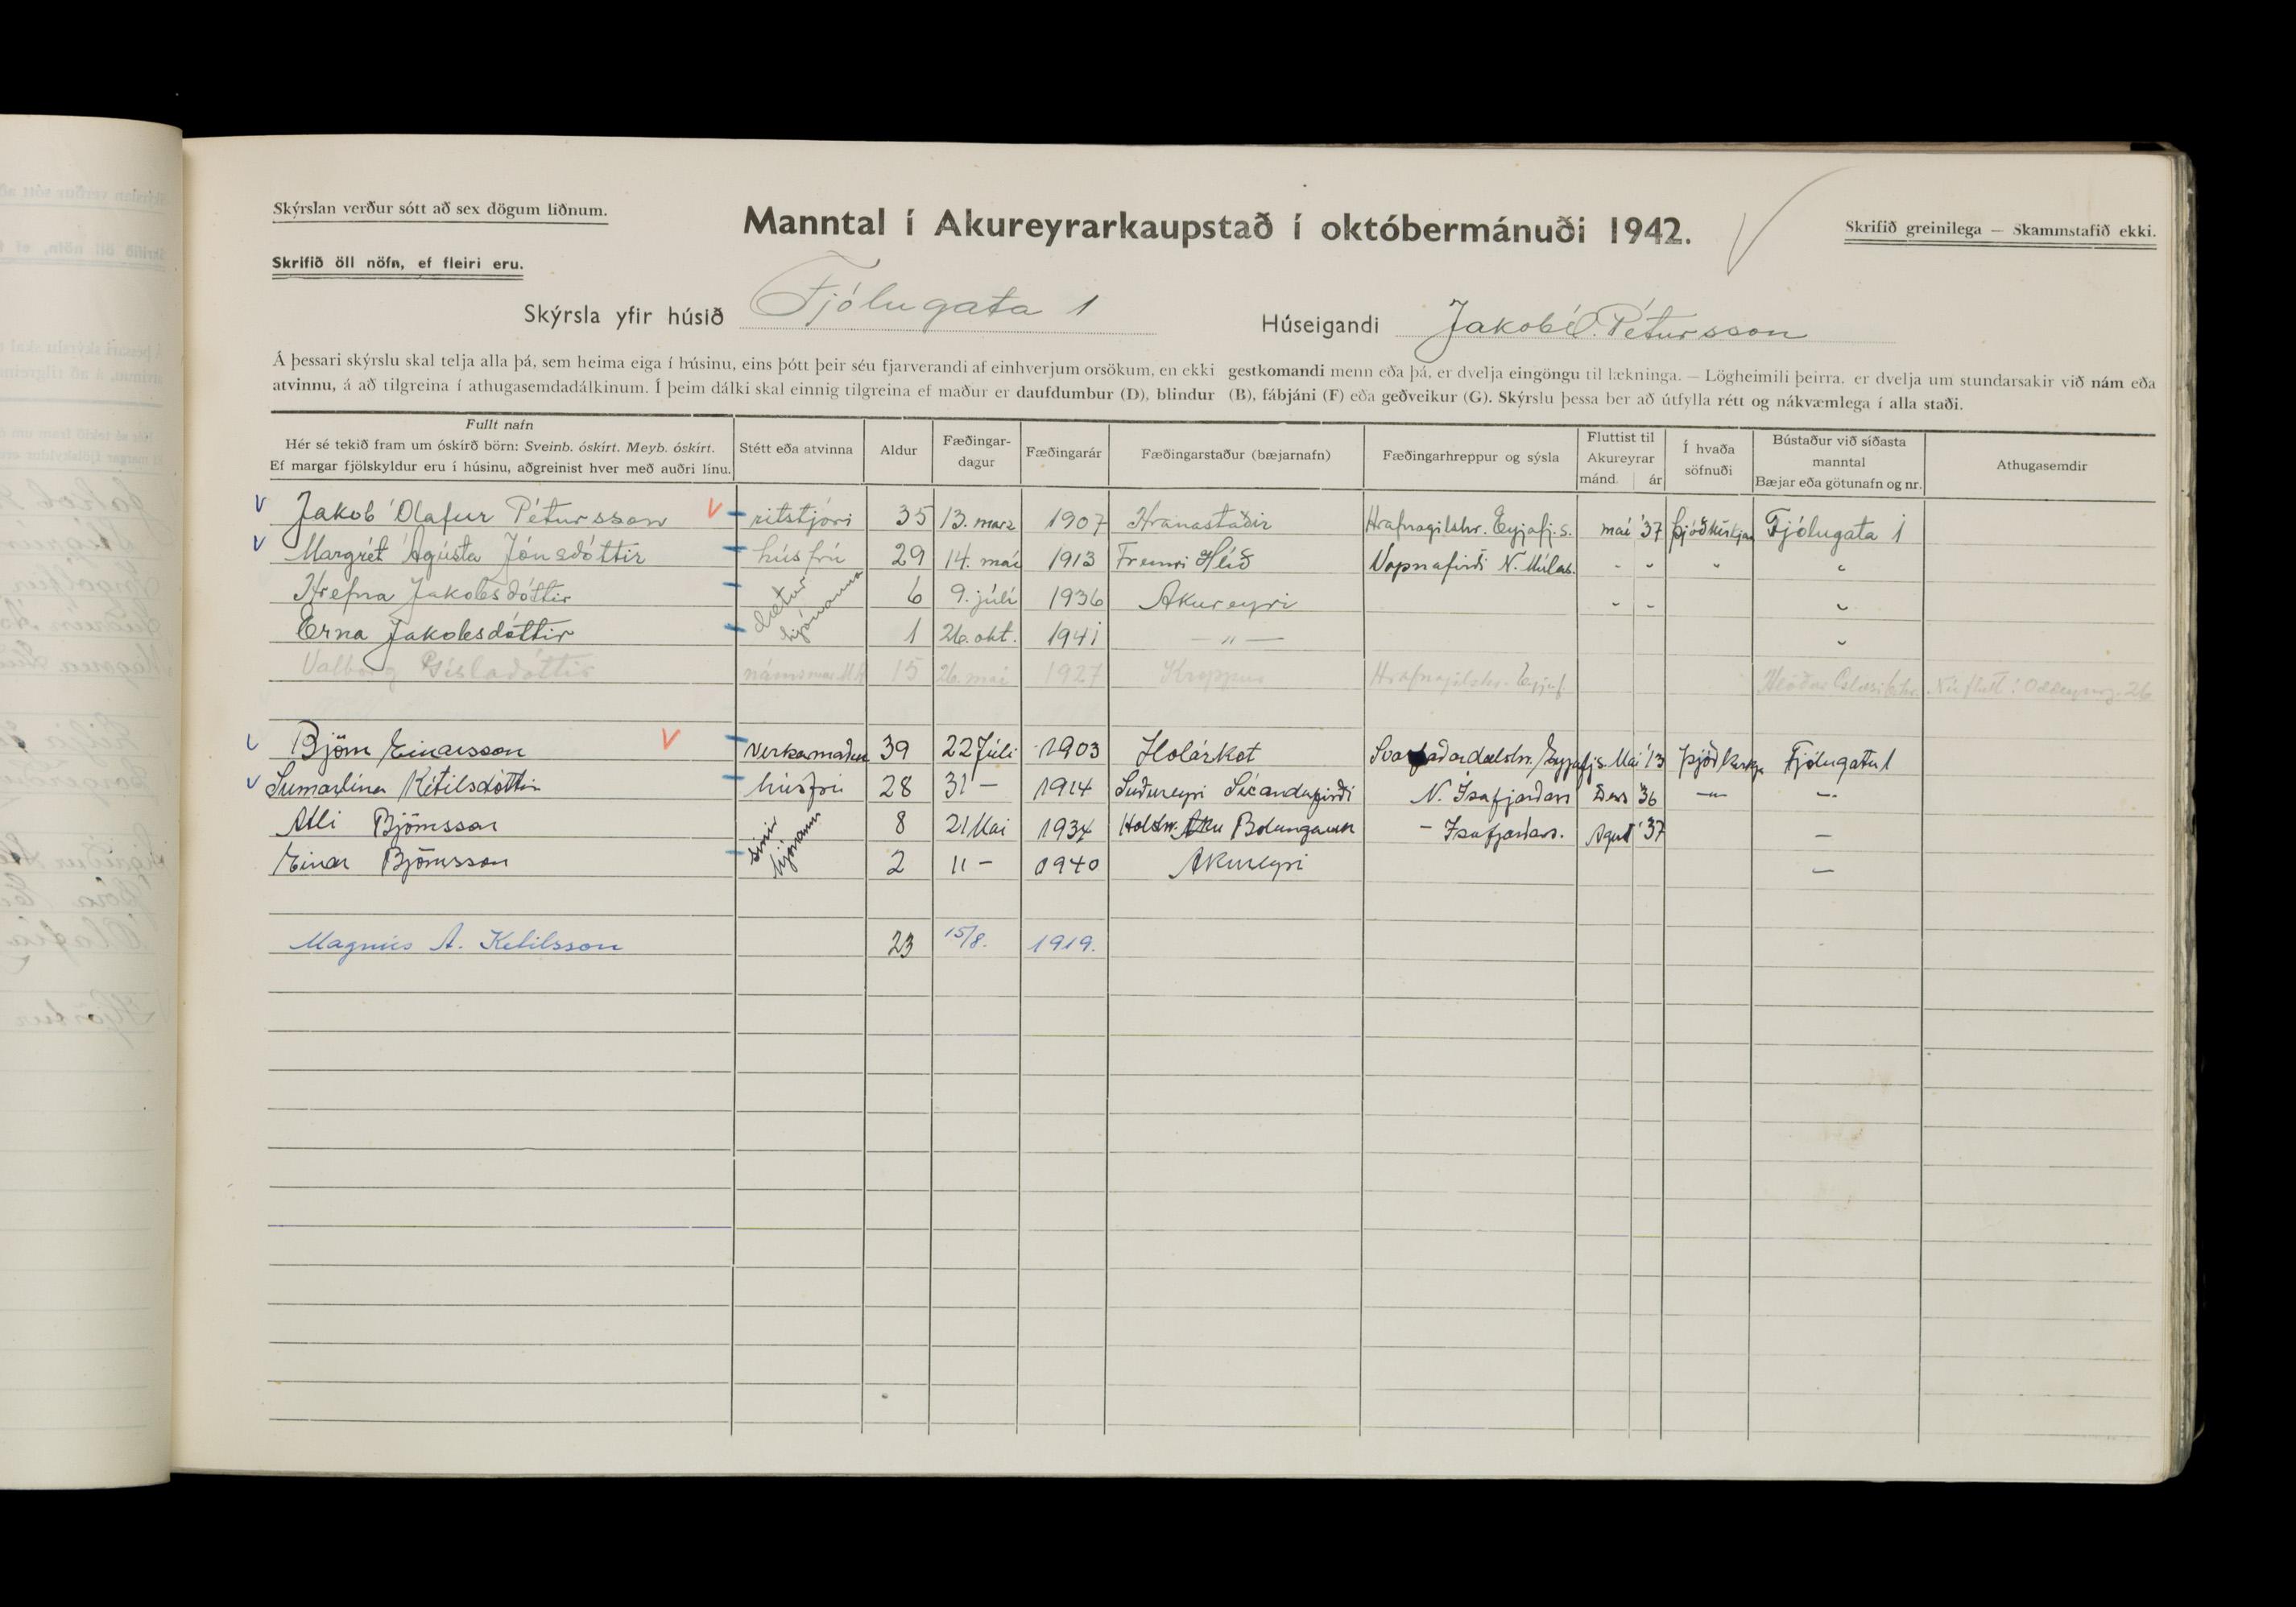 Skýrslan verður sótt að sex dögum liðnum.
Manntal í Akureyrarkaupstað í októbermánuði 1942.
Skrifið greinilega — Skammstafið ekki.
Skrifið öll nöfn, ef fleiri eru.
Skýrsla yfir húsið Fjólugata 1
Húseigandi Jakob Ó. Pétursson
Á þessari skýrslu skal telja alla þá, sem heima eiga í húsinu, eins þótt þeir séu fjarverandi af einhverjum orsökum, en ekki gestkomandi menn eða þá, er dvelja eingöngu til lækninga. — Lögheimili þeirra, er dvelja um stundarsakir við nám eða
atvinnu, á að tilgreina í athugasemdadálkinum. Í þeim dálki skal einnig tilgreina ef maður er daufdumbur (D), blindur (B), fábjáni (F) eða geðveikur (G). Skýrslu þessa ber að útfylla rétt og nákvæmlega í alla staði.
Fullt nafn
Hér sé tekið fram um óskírð börn: Sveinb. óskírt. Meyb. óskírt.
Ef margar fjölskyldur eru í húsinu, aðgreinist hver með auðri línu.
Stétt eða atvinna
Aldur
Fæðingar-
dagur
Fæðingarár
Fæðingarstaður (bæjarnafn)
Fæðingarhreppur og sýsla
Fluttist til
Akureyrar
mánd. ár
Í hvaða
söfnuði
Bústaður við síðasta
manntal
Bæjar eða götunafn og nr.
Athugasemdir
Jakob Ólafur Pétursson ritstjóri 35 13. marz 1907 Hranastaðir Hrafnagilshr. Eyjafj.s. maí '37 þjóðkirkjan Fjólugata 1
Margrét Ágústa Jónsdóttir húsfrú 29 14. maí 1913 Fremri Hlíð Vopnafirði N. Múlas. " " " "
Hrefna Jakobsdóttir dætur hjónanna 6 9. júlí 1936 Akureyri " " "
Erna Jakobsdóttir 1 26. okt. 1941 — " — "
Valborg Gísladóttir námsmær M A 15 26. maí 1927 Kroppur Hrafnagilshr. Eyjaf.
Björn Einarsson verkamaður 39 22 Júli 1903 Holárkot Svarfaðardalshr. Eyjafjs. Mai '13 þjóðkirkja Fjólugata 1
Sumarlína Ketilsdóttir húsfrú 28 31 — 1914 Suðureyri Súgandafirði N. Ísafjarðars Des '36 —"— —"—
Atli Björnsson synir hjónanna 8 21 Mai 1934 Bolungavík — Ísafjarðars. Agust '37 —
Einar Björnsson 2 11 — 1940 Akureyri —
Magnús A. Ketilsson 23 15/8. 1919.